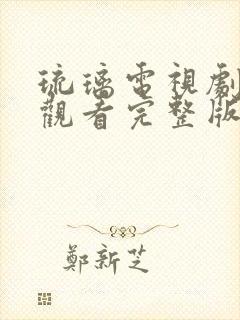 琉璃電視劇
觀看完整版
鄭新芝